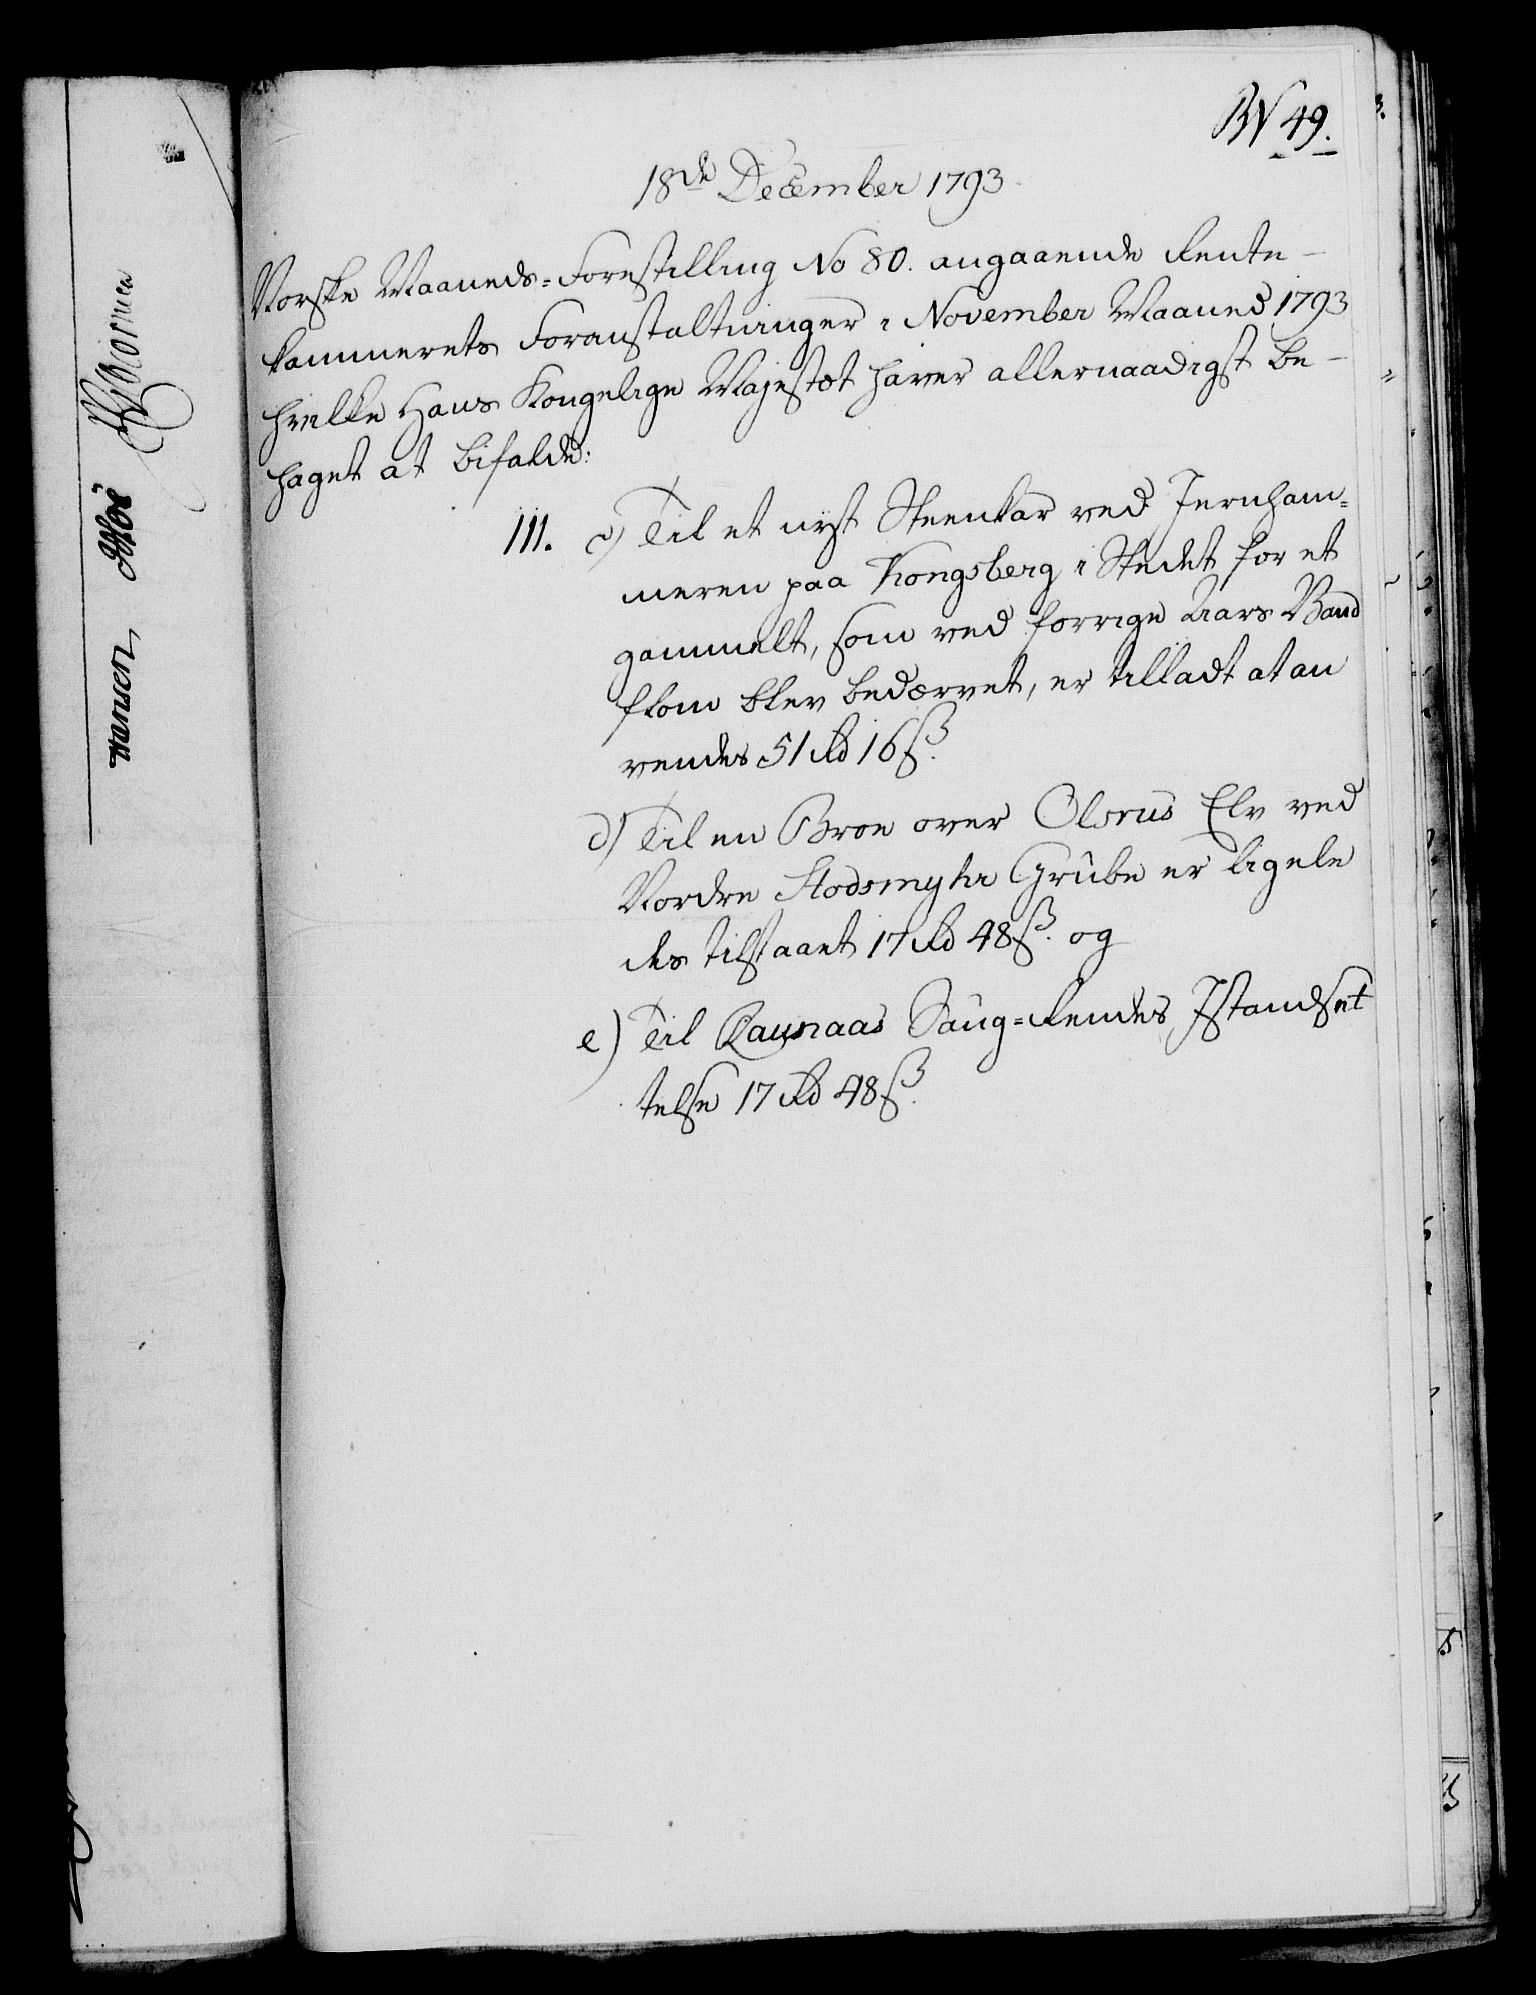 BN 49.
18de December 1793
Norske Maaneds-Forestilling No 80. angaaende Rente-
kammerets Foranstaltninger i November Maaned 1793
hvilke Hans Kongelige Majestæt haver allernaadigst be-
haget at bifalde:
111. c) Til et nyt Steenkar ved Jernham-
meren paa Kongsberg i Stedet for et
gammelt, som ved forrige Aars Vand
flom blev bedærvet, er tilladt at an
vendes 51 Rd 16 ß.
d) Til en Broe over Olsrus Elv ved
Nordre Skodsmyhr Grube er ligele
des tilstaaet 17 Rd 48 ß. og
e) Til Raunaas Saug-Rendes Istandset
telse 17 Rd 48 ß.